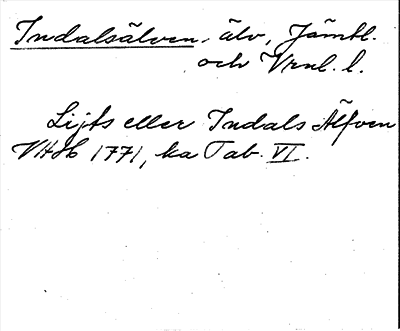 Indalsälven, älv, Jämtl.
och Vrnl. l.
Lijts eller Indals Älfven
VHH 1771, ka Tab. VI.